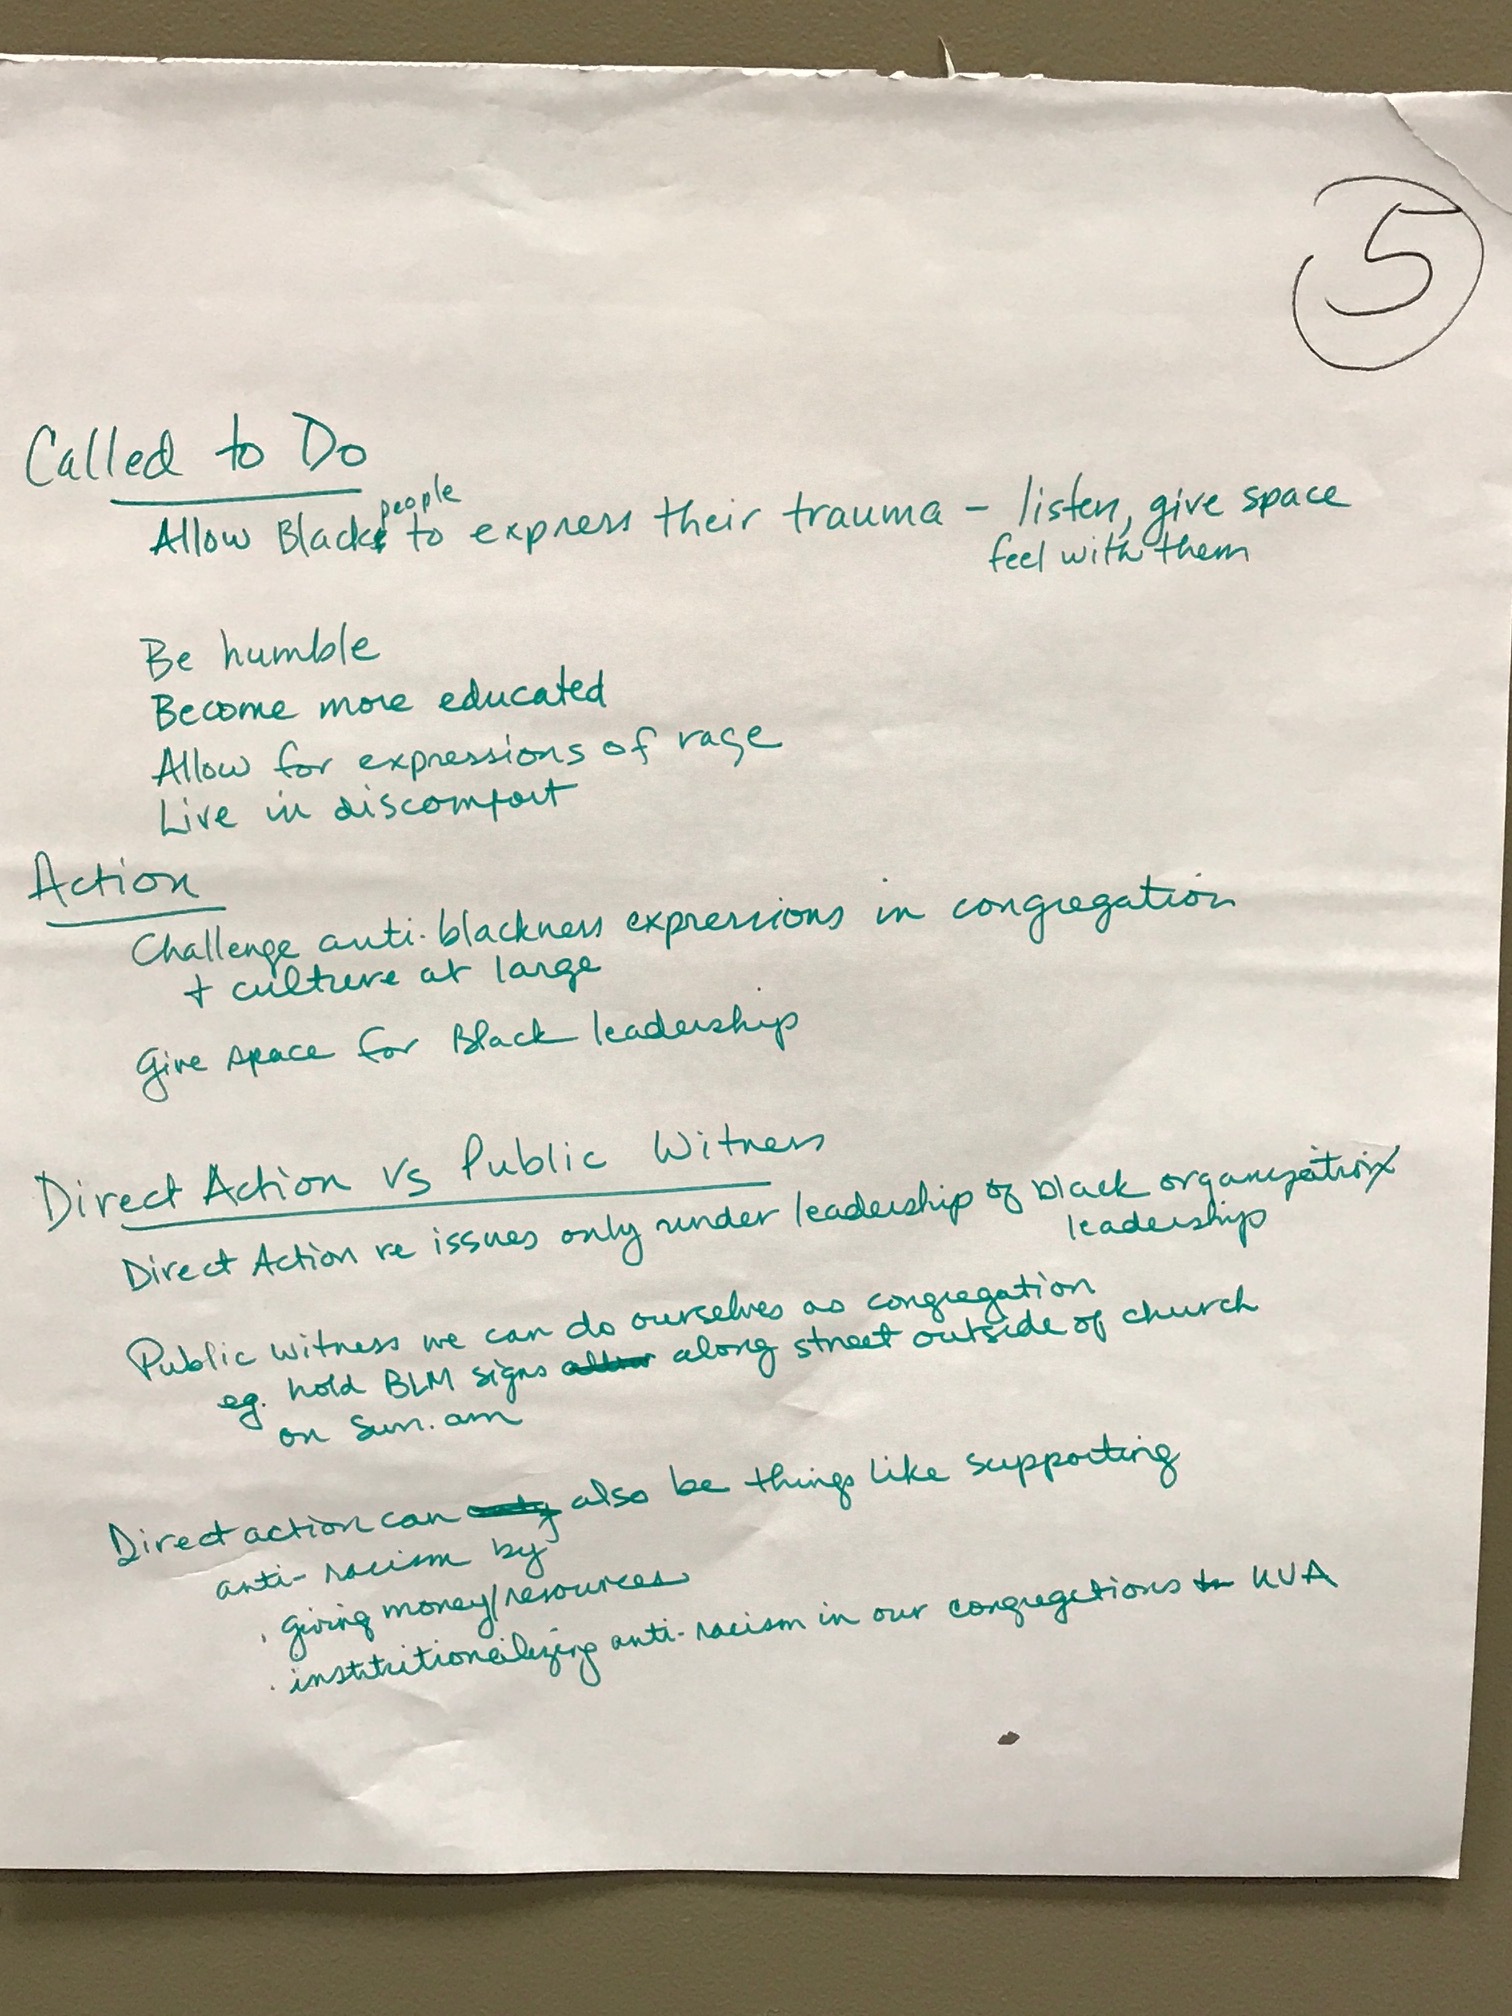 5
Called to Do
people
Allow Black to express their trauma - listen, give space
feel with them
Be humble
Become more educated
Allow for expressions of rage
Live in discomfort
Action
Challenge anti-blackness expressions in congregation
+ culture at large
Give space for Black leadership
Direct Action vs Public Witness
Direct Action re issues only under leadership of black organization
leadership
Public witness we can do ourselves as congregation
eg. hold BLM signs along street outside of church
on Sun. am
Direct action can also be things like supporting
anti-racism by
· giving money/resources
· institutionalizing anti-racism in our congregations UUA